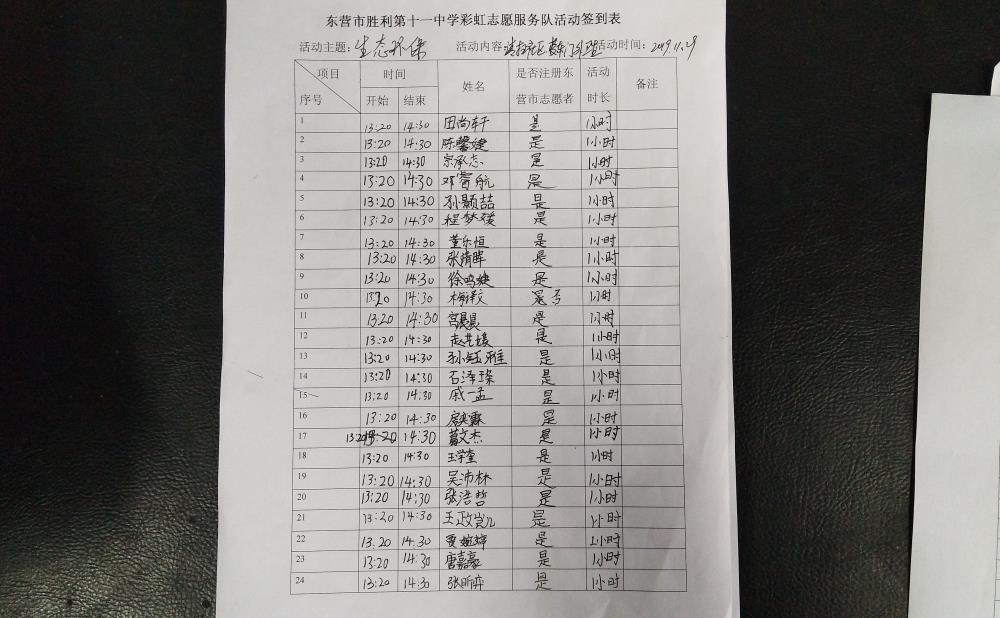 东营市胜利第十一中学彩虹志愿服务队活动签到表
活动主题：生态环保 活动内容： 活动时间：2019.11.29
项目 时间 姓名 是否注册东 活动 备注
序号 开始 结束 营市志愿者 时长
1 13:20 14:30 田尚轩 是 1小时
2 13:20 14:30 陈馨婕 是 1小时
3 13:20 14:30 宗承志 是 1小时
4 13:20 14:30 邓睿航 是 1小时
5 13:20 14:30 孙颢喆 是 1小时
6 13:20 14:30 程梦媛 是 1小时
7 13:20 14:30 董乐恒 是 1小时
8 13:20 14:30 张晴晖 是 1小时
9 13:20 14:30 徐鸣婕 是 1小时
10 13:20 14:30 梅泽文 否 1小时
11 13:20 14:30 宫晨晨 是 1小时
12 13:20 14:30 赵艺媛 是 1小时
13 13:20 14:30 孙钰雅 是 1小时
14 13:20 14:30 石泽琛 是 1小时
15 13:20 14:30 戚一孟 是 1小时
16 13:20 14:30 是 1小时
17 13:20 14:30 葛文杰 是 1小时
18 13:20 14:30 王学奎 是 1小时
19 13:20 14:30 吴沛林 是 1小时
20 13:20 14:30 张浩哲 是 1小时
21 13:20 14:30 王政凯 是 1小时
22 13:20 14:30 贾婉婷 是 1小时
23 13:20 14:30 唐嘉豪 是 1小时
24 13:20 14:30 张昕弈 是 1小时